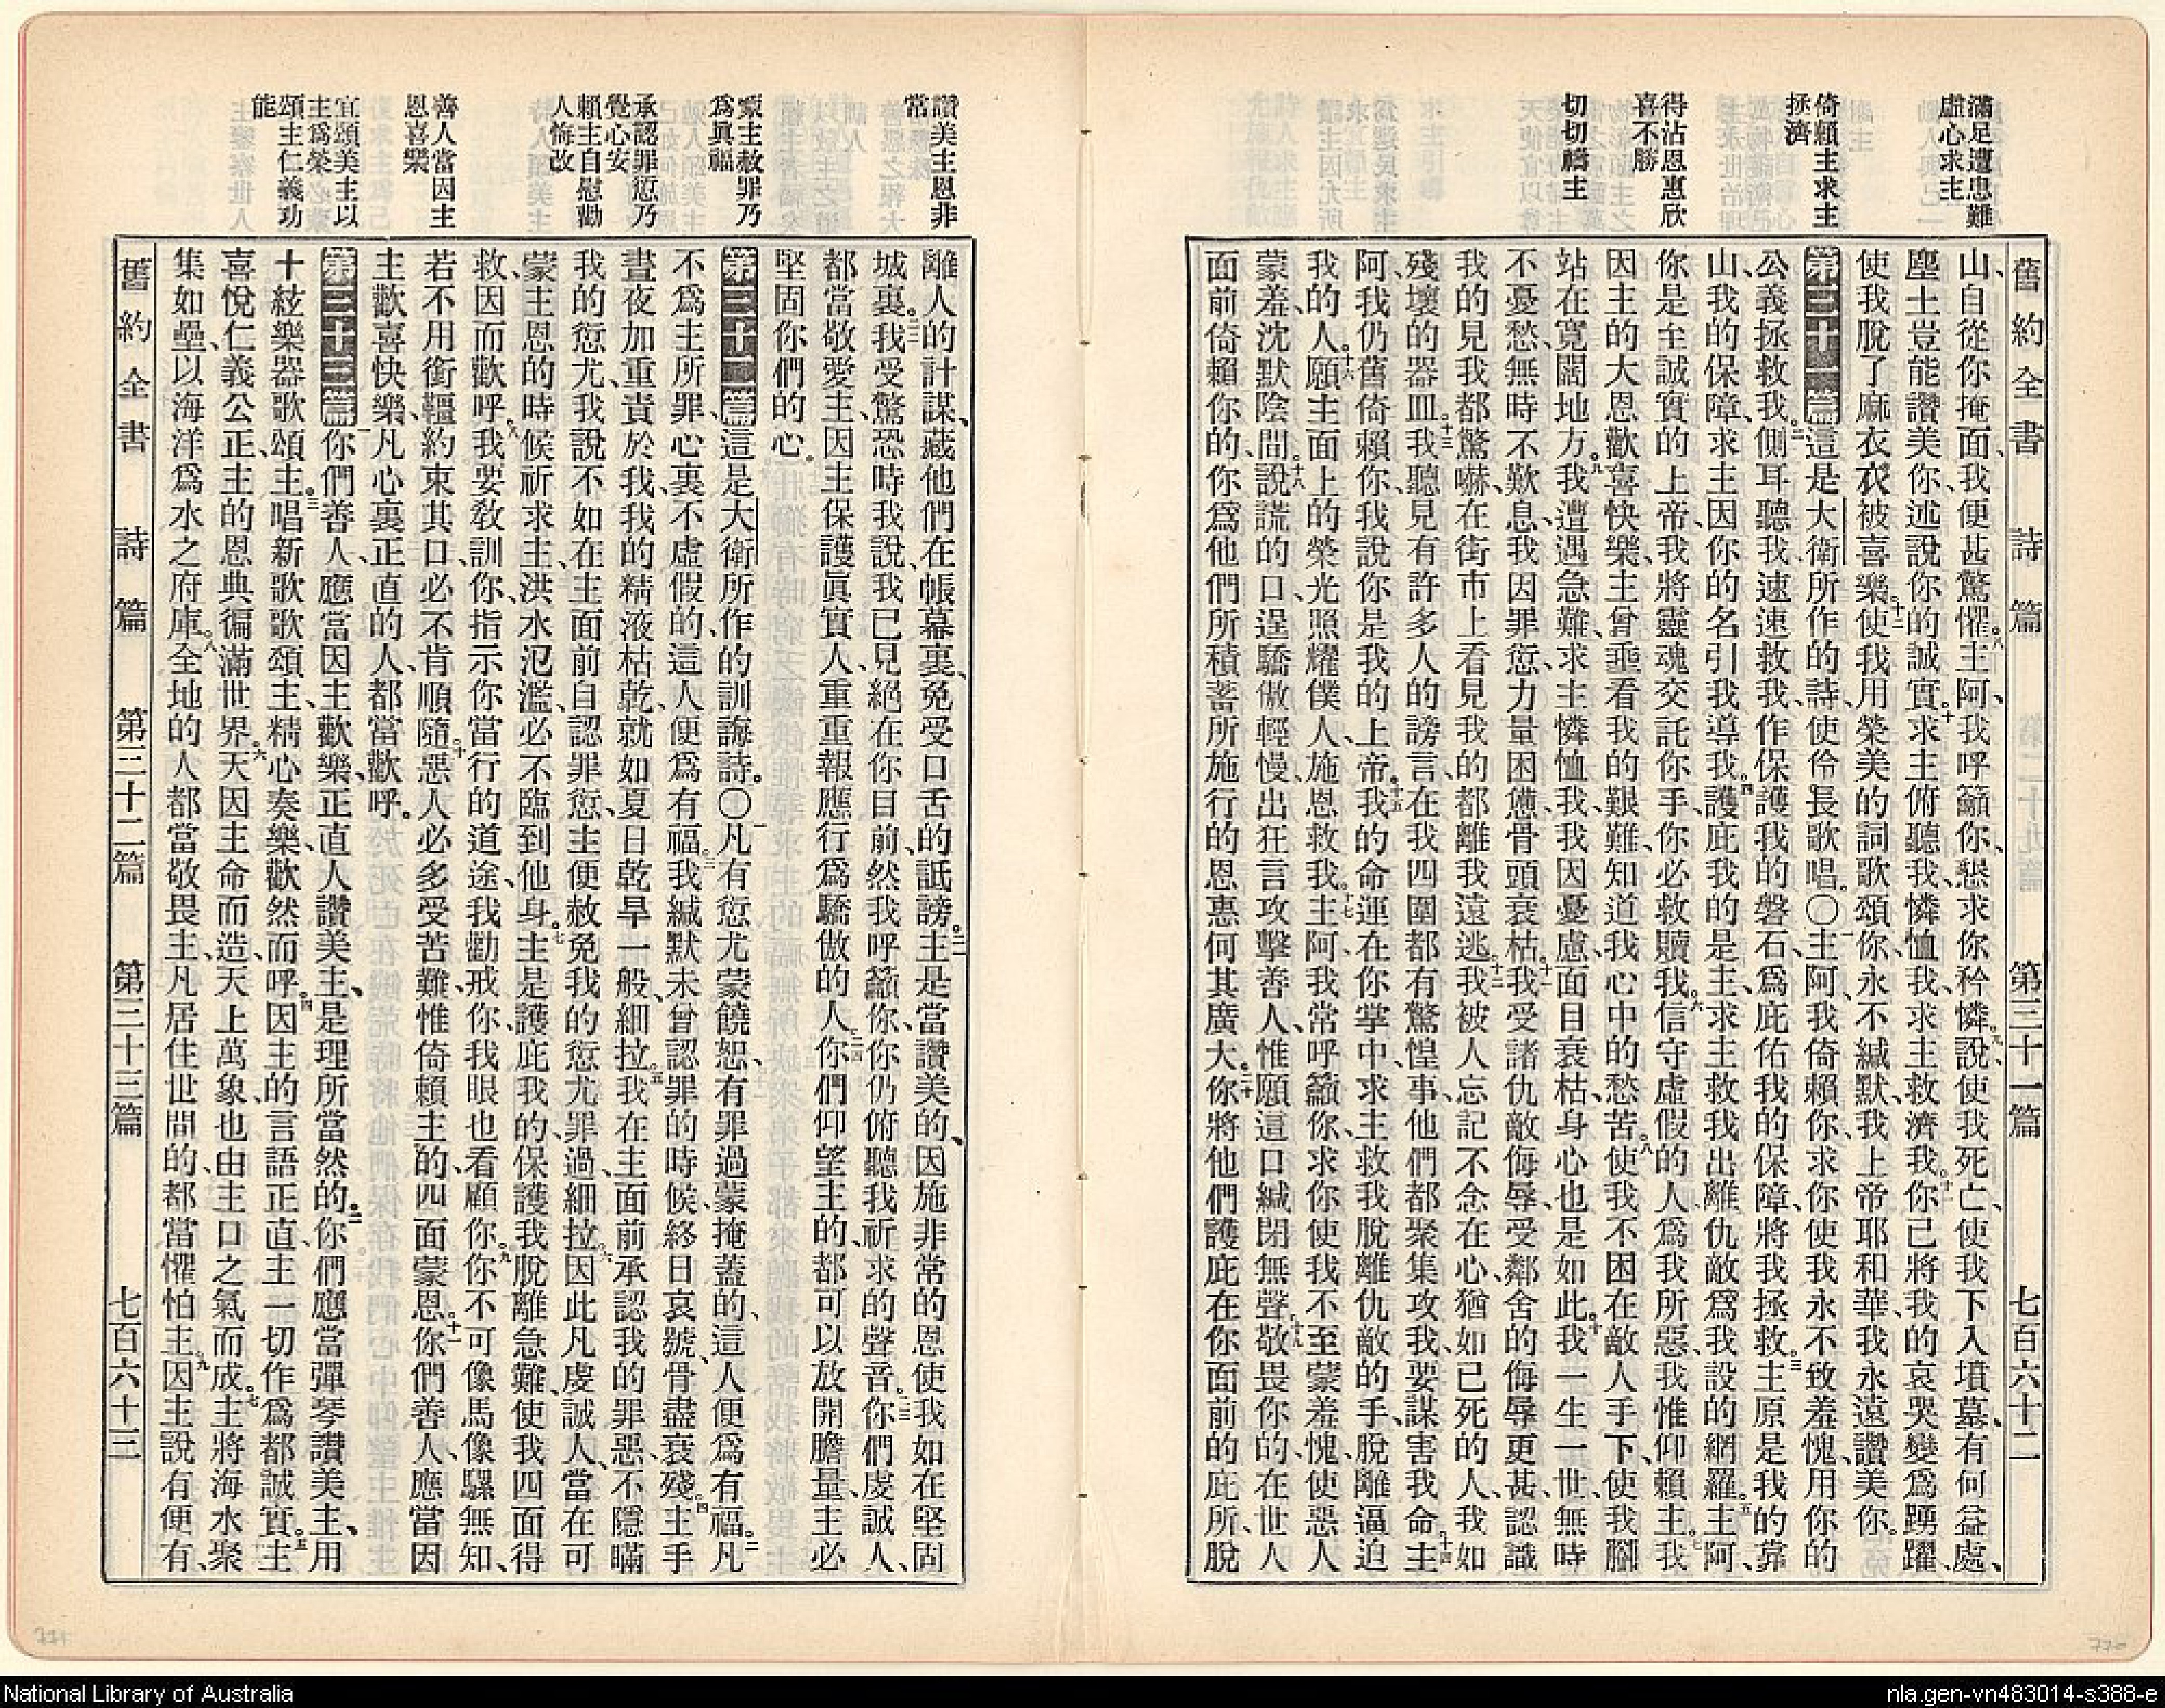 滿足遭患難
虛心求主
倚賴主求主
拯濟
得沾恩惠欣
喜不勝
切切禱主
舊約全書 詩篇 第三十一篇 七百六十二
山、自從你掩面、我便甚驚懼。八主阿、我呼籲你、懇求你矜憐。九說使我死亡、使我下入墳墓、有何益處、
塵土豈能讚美你、述說你的誠實。十求主俯聽我、憐恤我、求主救濟我。十一你已將我的哀哭變爲踴躍、
使我脫了麻衣、衣被喜樂。十二使我用榮美的詞歌頌你、永不緘默、我上帝耶和華、我永遠讚美你。
第三十一篇這是大衛所作的詩、使伶長歌唱。〇一主阿、我倚賴你、求你使我永不致羞愧、用你的
公義拯救我。二側耳聽我、速速救我、作保護我的磐石、爲庇佑我的保障、將我拯救。三主原是我的靠
山、我的保障、求主因你的名引我導我。四護庇我的是主、求主救我出離仇敵爲我設的網羅。五主阿、
你是至誠實的上帝、我將靈魂交託你手、你必救贖我。六信守虛假的人爲我所惡、我惟仰賴主。七我
因主的大恩、歡喜快樂、主曾垂看我的艱難、知道我心中的愁苦。八使我不困在敵人手下、使我腳
站在寬闊地方。九我遭遇急難、求主憐恤我、我因憂慮、面目衰枯、身心也是如此。十我一生一世、無時
不憂愁、無時不歎息、我因罪愆、力量困憊、骨頭衰枯。十一我受諸仇敵侮辱、受鄰舍的侮辱更甚、認識
我的見我都驚嚇、在街市上看見我的、都離我遠逃。十二我被人忘記、不念在心、猶如已死的人、我如
殘壞的器皿。十三我聽見有許多人的謗言、在我四圍都有驚惶事、他們都聚集攻我、要謀害我命。十四主
阿、我仍舊倚賴你、我說、你是我的上帝。十五我的命運在你掌中、求主救我脫離仇敵的手、脫離逼迫
我的人。十六願主面上的榮光照耀僕人、施恩救我。十七主阿、我常呼籲你、求你使我不至蒙羞愧、使惡人
蒙羞、沈默陰間。十八說謊的口、逞驕傲輕慢、出狂言攻擊善人、惟願這口緘閉無聲。十九敬畏你的、在世人
面前倚賴你的、你爲他們所積蓄所施行的恩惠、何其廣大。二十你將他們護庇在你面前的庇所、脫
讚美主恩非
常
蒙主赦罪乃
爲眞福
承認罪愆乃
覺心安
賴主自慰勸
人悔改
善人當因主
恩喜樂
宜頌美主以
主爲榮
頌主仁義功
能
離人的計謀、藏他們在帳幕裏、免受口舌的詆謗。二一主是當讚美的、因施非常的恩、使我如在堅固
城裏。二二我受驚恐時我說、我已見絕在你目前、然我呼籲你、你仍俯聽我祈求的聲音。二三你們虔誠人、
都當敬愛主、因主保護眞實人、重重報應行爲驕傲的人。二四你們仰望主的、都可以放開膽量、主必
堅固你們的心。
第三十二篇這是大衛所作的訓誨詩。〇一凡有愆尤蒙饒恕、有罪過蒙掩蓋的、這人便爲有福。二凡
不爲主所罪、心裏不虛假的、這人便爲有福。三我緘默未曾認罪的時候、終日哀號、骨盡衰殘。四主手
晝夜加重責於我、我的精液枯乾、就如夏日乾旱一般、細拉。五我在主面前承認我的罪惡、不隱瞞
我的愆尤、我說、不如在主面前自認罪愆、主便赦免我的愆尤罪過、細拉。六因此凡虔誠人、當在可
蒙主恩的時候祈求主、洪水氾濫、必不臨到他身。七主是護庇我的、保護我脫離急難、使我四面得
救、因而歡呼。八我要教訓你、指示你當行的道途、我勸戒你、我眼也看顧你。九你不可像馬像騾無知、
若不用銜韁約束其口、必不肯順隨。十惡人必多受苦難、惟倚賴主的、四面蒙恩。十一你們善人、應當因
主歡喜快樂、凡心裏正直的人、都當歡呼。
第三十三篇你們善人、應當因主歡樂、正直人讚美主、是理所當然的。二你們應當彈琴讚美主、用
十絃樂器歌頌主。三唱新歌歌頌主、精心奏樂、歡然而呼。四因主的言語正直、主一切作爲都誠實。五主
喜悅仁義公正、主的恩典徧滿世界。六天因主命而造、天上萬象也由主口之氣而成。七主將海水聚
集如壘、以海洋爲水之府庫。八全地的人都當敬畏主、凡居住世間的、都當懼怕主。九因主說有便有、
舊約全書 詩篇 第三十二篇 第三十三篇 七百六十三
771
770
National Library of Australia
nla.gen-vn483014-s388-e